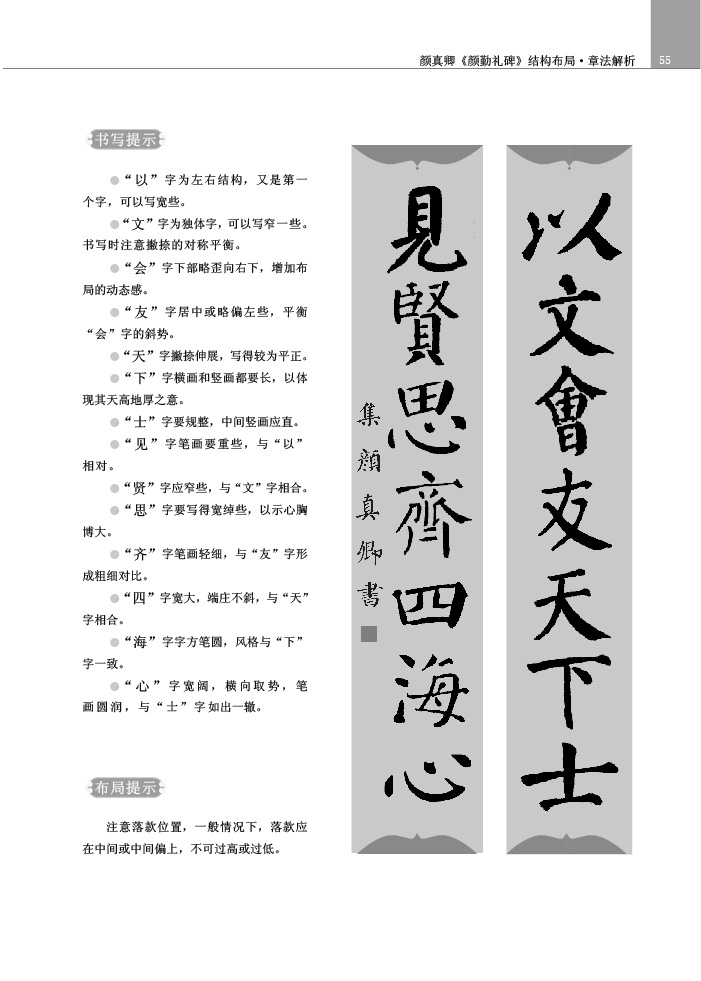 颜真卿《颜勤礼碑》结构布局·章法解析
55
书写提示
●“以”字为左右结构，又是第一
个字，可以写宽些。
●“文”字为独体字，可以写窄一些。
书写时注意撇捺的对称平衡。
●“会”字下部略歪向右下，增加布
局的动态感。
●“友”字居中或略偏左些，平衡
“会”字的斜势。
●“天”字撇捺伸展，写得较为平正。
●“下”字横画和竖画都要长，以体
现其天高地厚之意。
●“士”字要规整，中间竖画应直。
●“见”字笔画要重些，与“以”
相对。
●“贤”字应窄些，与“文”字相合。
●“思”字要写得宽绰些，以示心胸
博大。
●“齐”字笔画轻细，与“友”字形
成粗细对比。
●“四”字宽大，端庄不斜，与“天”
字相合。
●“海”字字方笔圆，风格与“下”
字一致。
●“心”字宽阔，横向取势，笔
画圆润，与“士”字如出一辙。
布局提示
注意落款位置，一般情况下，落款应
在中间或中间偏上，不可过高或过低。
以文會友天下士
見賢思齊四海心
集顏真卿書